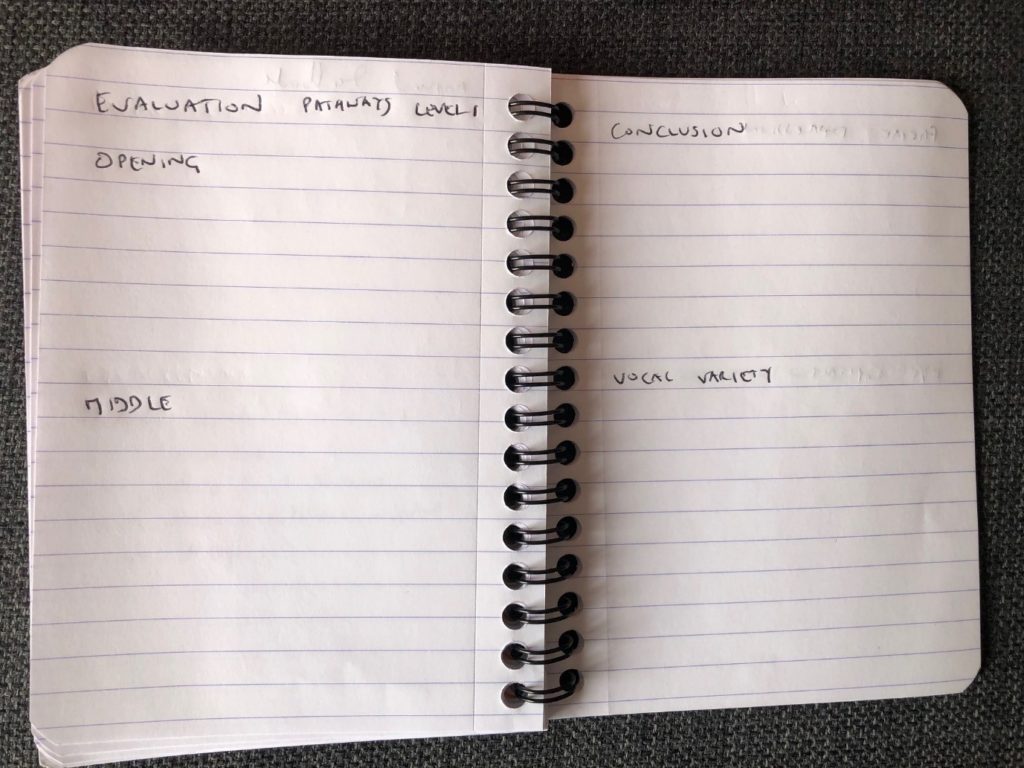 EVALUATION PATHWAYS LEVEL 1
OPENING
MIDDLE
CONCLUSION
VOCAL VARIETY